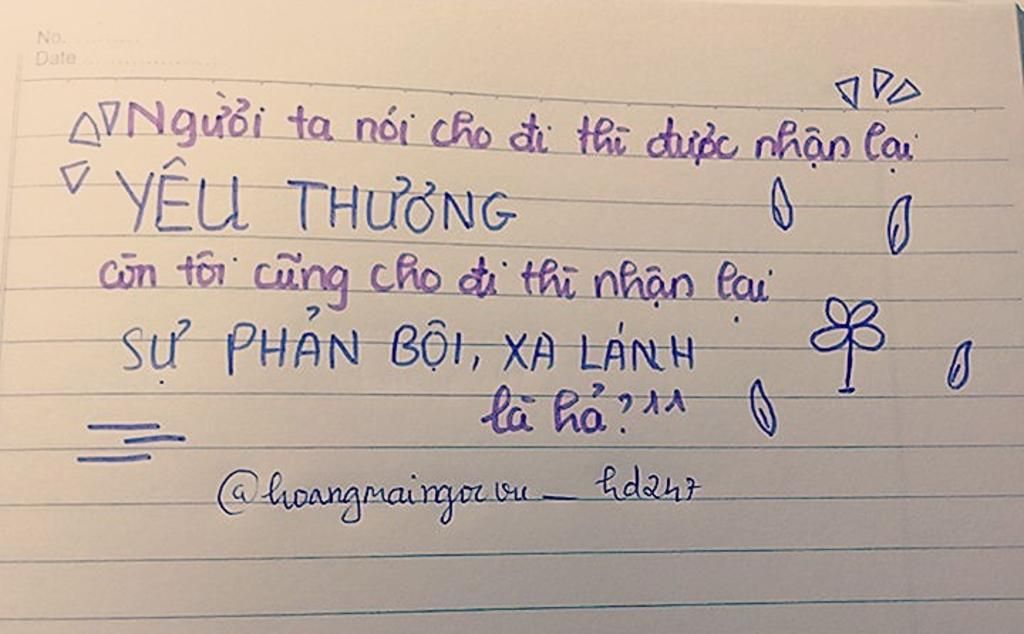 No.
Date
Người ta nói cho đi thì được nhận lại
YÊU THƯƠNG
còn tôi cũng cho đi thì nhận lại
SỰ PHẢN BỘI, XA LÁNH
là hả?
@hoangmaingocvu_hd247